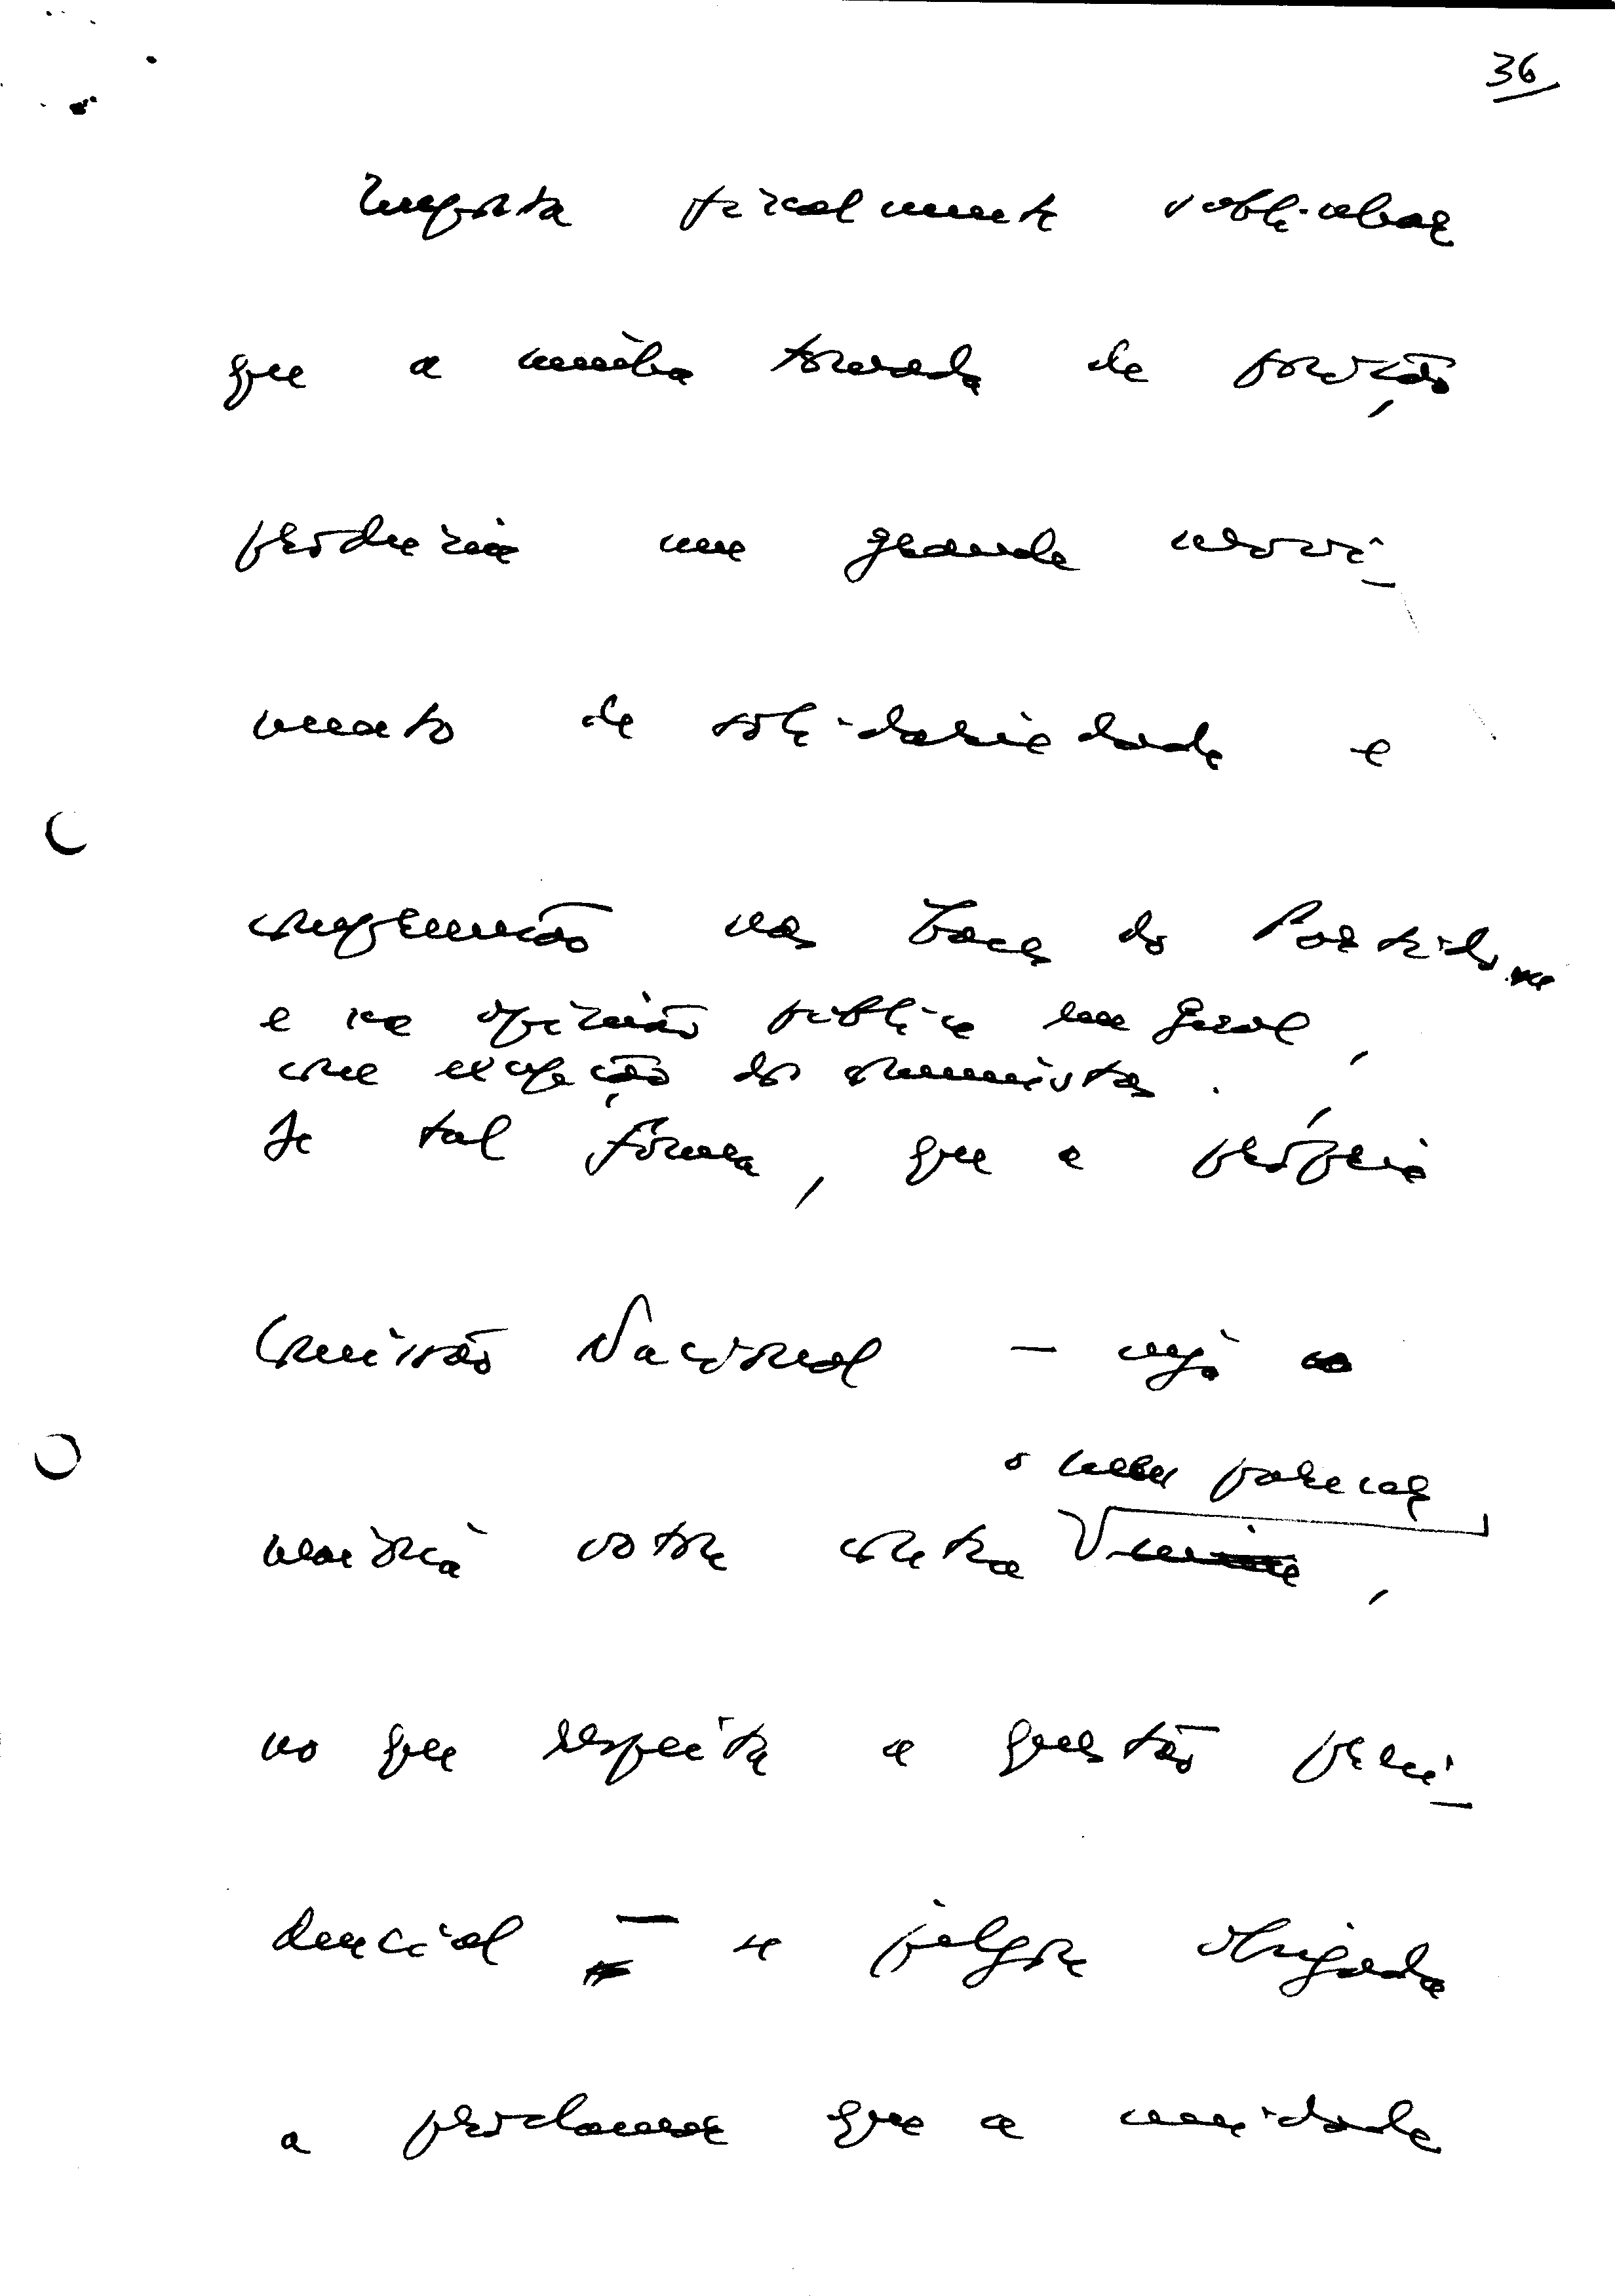 36
Importa finalmente sublinhar
que a minha tomada de posição
produziu um grande movi-
mento de solidariedade e
compreensão nas bases do Partido
e na opinião pública em geral,
com excepção dos comunistas.
De tal forma, que a própria
Comissão Nacional - cuja
o meu parecer
maioria votou contra
no que respeita a questão presi-
dencial - se julgou obrigada
a proclamar que a unidade